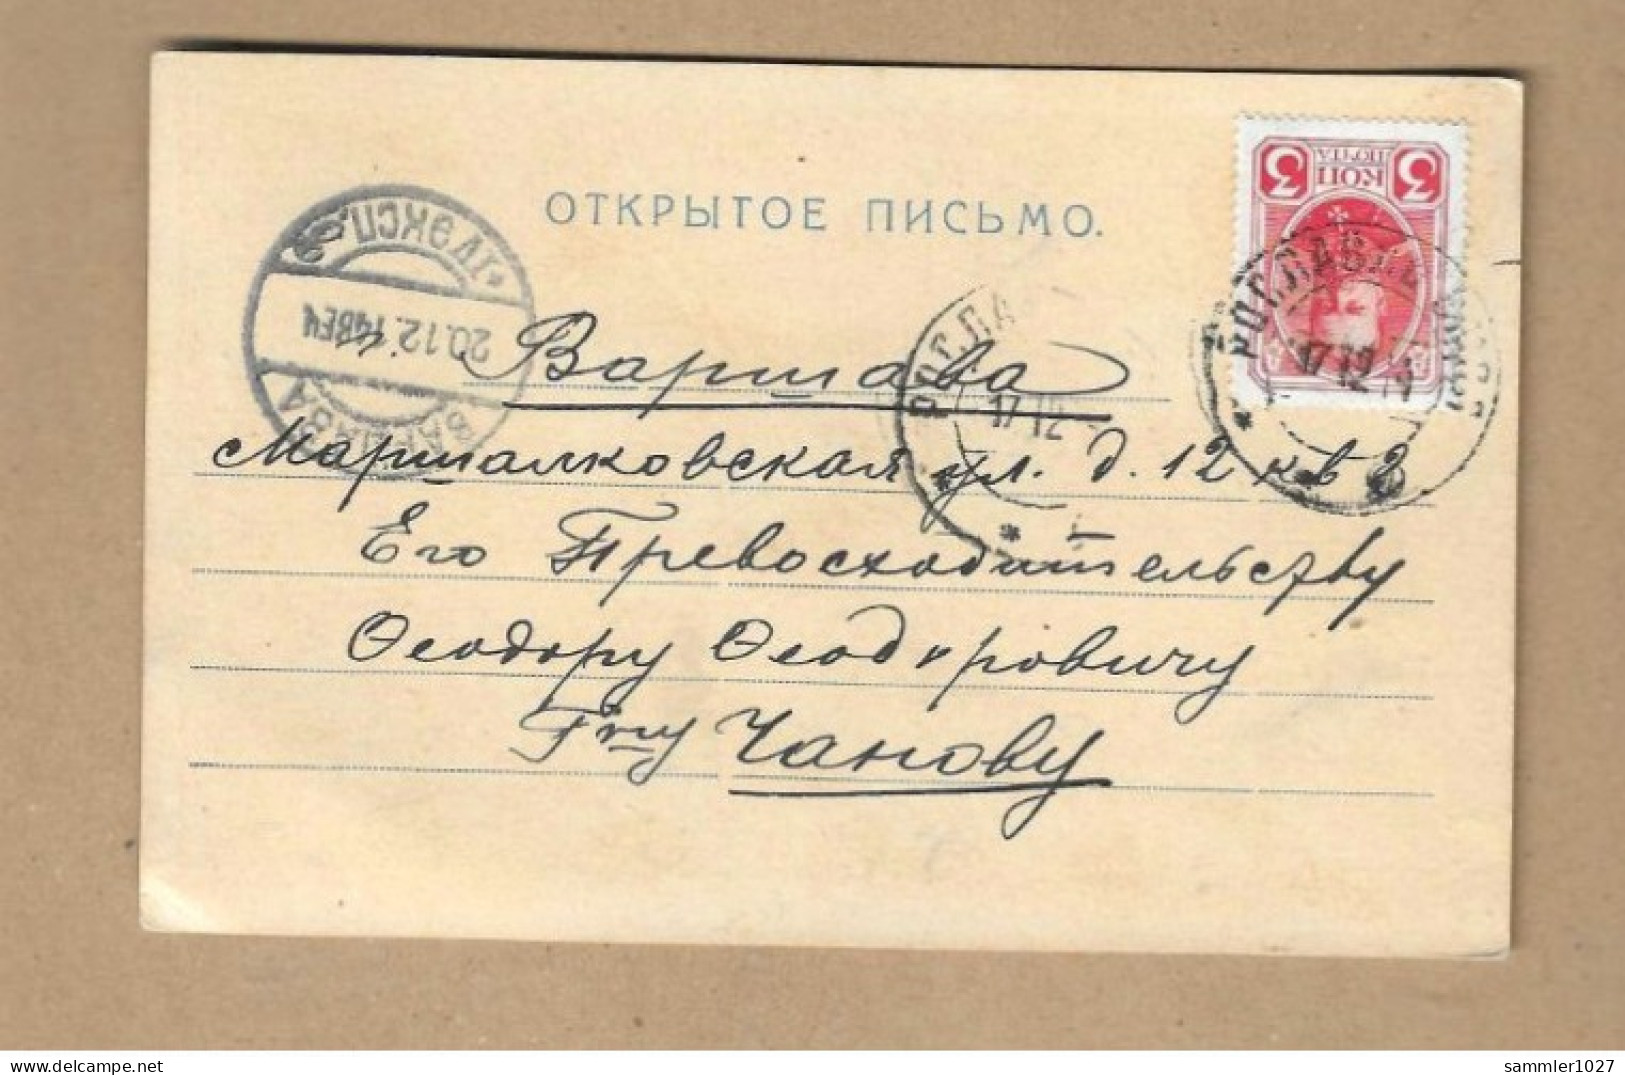 ОТКРЫТОЕ ПИСЬМО.
3 КОП ПОЧТА 3
РОСЛАВЛЬ
17 12
РОСЛА
17 12
IV ЭКСП.
20.12.14 ВЕЧ
ВАРШАВА
г. Варшава
Маршалковская ул. д. 12 кв 2
Его Превосходительству
Феодору Феодоровичу
Г-ну Чанову
sammler1027